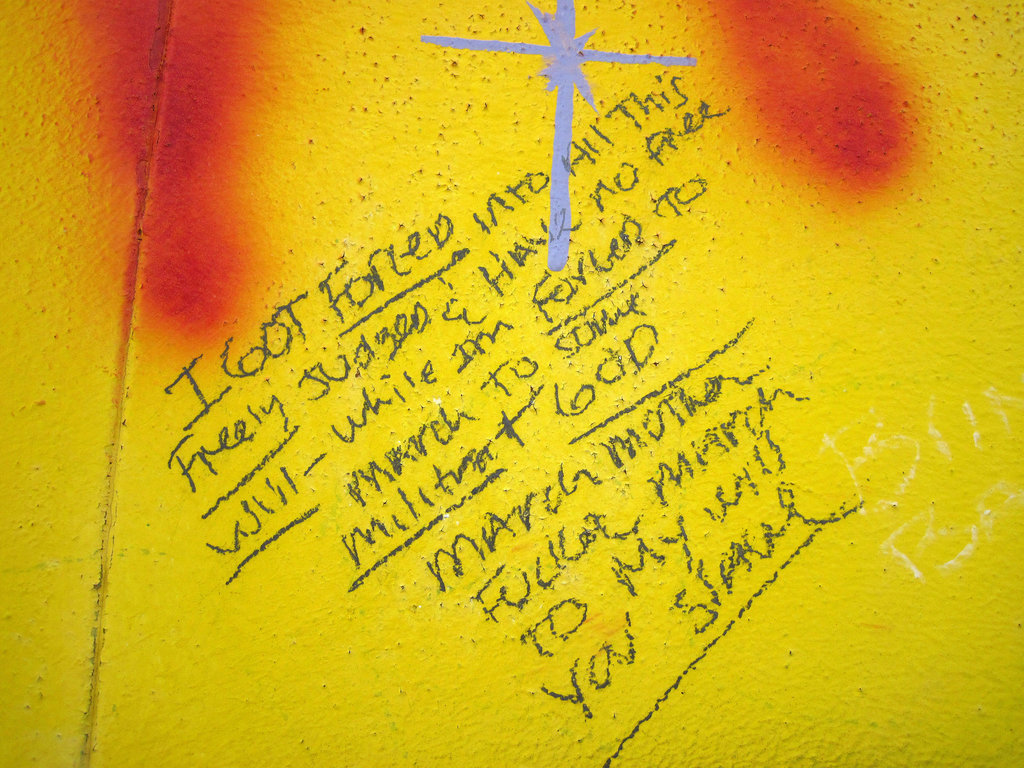 I GOT Forced into All This
Freely Judzed & Have no free
will - while Im Forced to
march to some
military + GOD
march mother
Fucker march
To My will
You
Billy